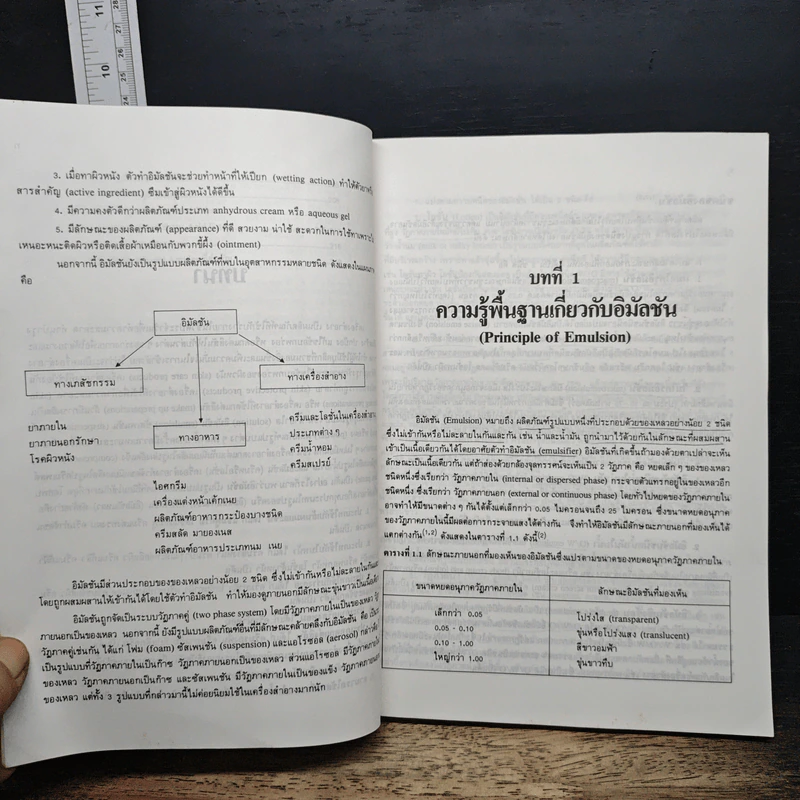 11
10
28
27
26
25
24
3. เมื่อทาผิวหนัง ตัวทำอิมัลชันจะช่วยทำหน้าที่ให้เปียก (wetting action) ทำให้ตัวยาหรือ
สารสำคัญ (active ingredient) ซึมเข้าสู่ผิวหนังได้ดีขึ้น
4. มีความคงตัวดีกว่าผลิตภัณฑ์ประเภท anhydrous cream หรือ aqueous gel
5. มีลักษณะของผลิตภัณฑ์ (appearance) ที่ดี สวยงาม น่าใช้ สะดวกในการใช้ทาเพราะไม่
เหนอะหนะติดผิวหรือติดเสื้อผ้าเหมือนกับพวกขี้ผึ้ง (ointment)
นอกจากนี้ อิมัลชันยังเป็นรูปแบบผลิตภัณฑ์ที่พบในอุตสาหกรรมหลายชนิด ดังแสดงใน
คือ
อิมัลชัน
ทางเภสัชกรรม
ทางเครื่องสำอาง
ทางอาหาร
ยาภายใน
ยาภายนอกรักษา
โรคผิวหนัง
ครีมและโลชั่นในเครื่องสำอาง
ประเภทต่าง ๆ
ครีมน้ำหอม
ครีมสเปรย์
ไอศกรีม
เครื่องแต่งหน้าเค้กเนย
ผลิตภัณฑ์อาหารกระป๋องบางชนิด
ครีมสลัด มายองเนส
ผลิตภัณฑ์อาหารประเภทนม เนย
อิมัลชันมีส่วนประกอบของของเหลวอย่างน้อย 2 ชนิด ซึ่งไม่เข้ากันหรือไม่ละลายในกันและ
โดยถูกผสมผสานให้เข้ากันได้โดยใช้ตัวทำอิมัลชัน ทำให้มองดูภายนอกมีลักษณะขุ่นขาวเป็นเนื้อเดียว
อิมัลชันถูกจัดเป็นระบบวัฏภาคคู่ (two phase system) โดยมีวัฏภาคภายในเป็นของเหลว
ภายนอกเป็นของเหลว นอกจากนี้ ยังมีรูปแบบผลิตภัณฑ์อื่นที่มีลักษณะคล้ายคลึงกับอิมัลชัน คือ
วัฏภาคคู่เช่นกัน ได้แก่ โฟม (foam) ซัสเพนชัน (suspension) และแอโรซอล (aerosol) กล่าวคือ
เป็นรูปแบบที่วัฏภาคภายในเป็นก๊าซ วัฏภาคภายนอกเป็นของเหลว ส่วนแอโรซอล มีวัฏภาคภายใน
ของเหลว วัฏภาคภายนอกเป็นก๊าซ และซัสเพนชัน มีวัฏภาคภายในเป็นของแข็ง วัฏภาคภายนอก
ของเหลว แต่ทั้ง 3 รูปแบบที่กล่าวมานี้ไม่ค่อยนิยมใช้ในเครื่องสำอางมากนัก
บทที่ 1
ความรู้พื้นฐานเกี่ยวกับอิมัลชัน
(Principle of Emulsion)
อิมัลชัน (Emulsion) หมายถึง ผลิตภัณฑ์รูปแบบหนึ่งที่ประกอบด้วยของเหลวอย่างน้อย 2 ชนิด
ซึ่งไม่เข้ากันหรือไม่ละลายในกันและกัน เช่น น้ำและน้ำมัน ถูกนำมาไว้ด้วยกันในลักษณะที่ผสมผสาน
เข้าเป็นเนื้อเดียวกันได้โดยอาศัยตัวทำอิมัลชัน (emulsifier) อิมัลชันที่เกิดขึ้นถ้ามองด้วยตาเปล่าจะเห็น
ลักษณะเป็นเนื้อเดียวกัน แต่ถ้าส่องด้วยกล้องจุลทรรศน์จะเห็นเป็น 2 วัฏภาค คือ หยดเล็ก ๆ ของของเหลว
ชนิดหนึ่งซึ่งเรียกว่า วัฏภาคภายใน (internal or dispersed phase) กระจายตัวแทรกอยู่ในของเหลวอีก
ชนิดหนึ่ง ซึ่งเรียกว่า วัฏภาคภายนอก (external or continuous phase) โดยทั่วไปหยดของวัฏภาคภายใน
อาจทำให้มีขนาดต่าง ๆ กันได้ตั้งแต่เล็กกว่า 0.05 ไมครอนจนถึง 25 ไมครอน ซึ่งขนาดหยดอนุภาค
ของวัฏภาคภายในนี้มีผลต่อการกระจายแสงได้ต่างกัน จึงทำให้อิมัลชันมีลักษณะภายนอกที่มองเห็นได้
แตกต่างกัน(1,2) ดังแสดงในตารางที่ 1.1 ดังนี้(2)
ตารางที่ 1.1 ลักษณะภายนอกที่มองเห็นของอิมัลชันซึ่งแปรตามขนาดของหยดอนุภาควัฏภาคภายใน
ขนาดหยดอนุภาควัฏภาคภายใน
ลักษณะอิมัลชันที่มองเห็น
เล็กกว่า 0.05
โปร่งใส (transparent)
0.05 - 0.10
ขุ่นหรือโปร่งแสง (translucent)
0.10 - 1.00
สีขาวอมฟ้า
ใหญ่กว่า 1.00
ขุ่นขาวทึบ